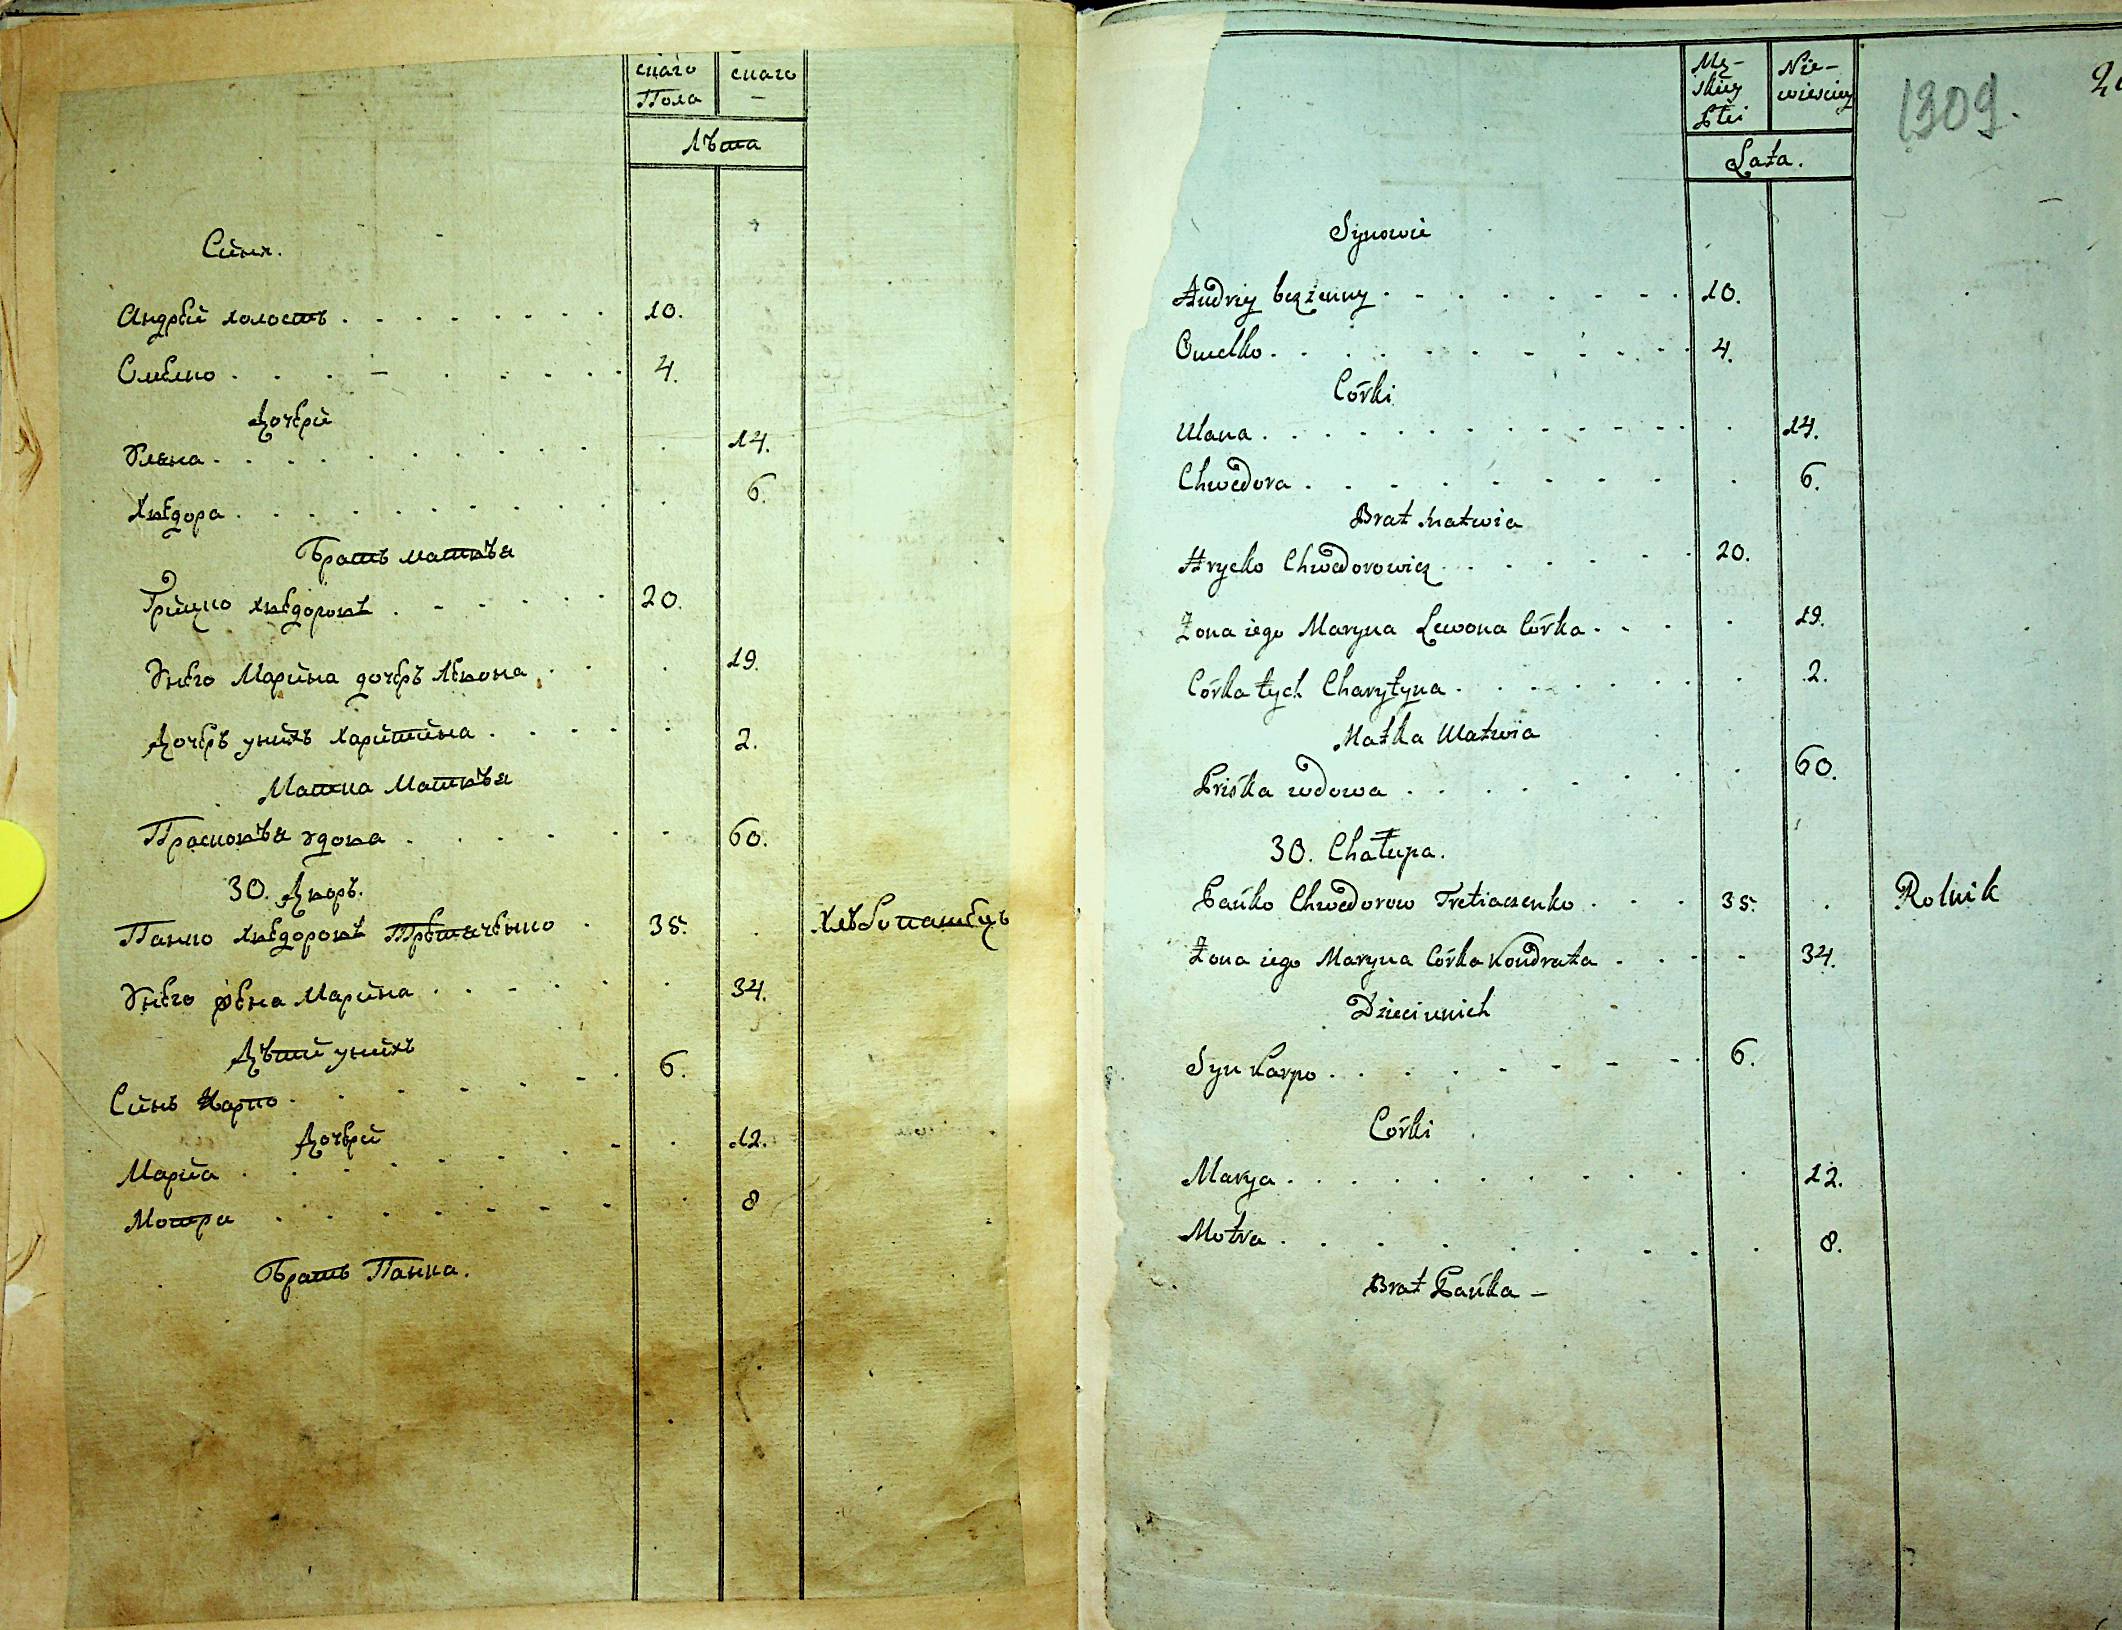 скаго
Пола
скаго
Лѣта
Сини.
Андрей холостъ 10.
Омелко 4.
Дочери
Уляна 14.
Хведора 6.
Братъ матвѣя
Грицко хведоровъ 20.
Унего Марина дочеръ Левона 19.
Дочеръ унихъ харитина 2.
Матка Матвѣя
Прасковѣя удова 60.
30. Дворъ.
Панко хведоровъ Третяченко 35. Хлѣбопашецъ
Унего жена Марина 34.
Дѣти унихъ
Синъ Карпо 6.
Дочери
Мариа 12.
Мотра 8
Братъ Панка.
Mę-
skiey
Płci
Nie-
wiesciey
1309.
Lata.
Synowie
Andriy bezżenny 10.
Omelko 4.
Córki
Ulana 14.
Chwedora 6.
Brat Matwia
Hrycko Chwedorowicz 20.
Żona iego Maryna Lewona Córka 19.
Córka tych Charytyna 2.
Matka Matwia
Priśka wdowa 60.
30. Chałupa.
Pańko Chwedorow Tretiaczenko 35. Rolnik
Żona iego Maryna Córka Kondrata 34.
Dzieci unich
Syn Karpo 6.
Córki
Marya 12.
Motra 8.
Brat Pańka –